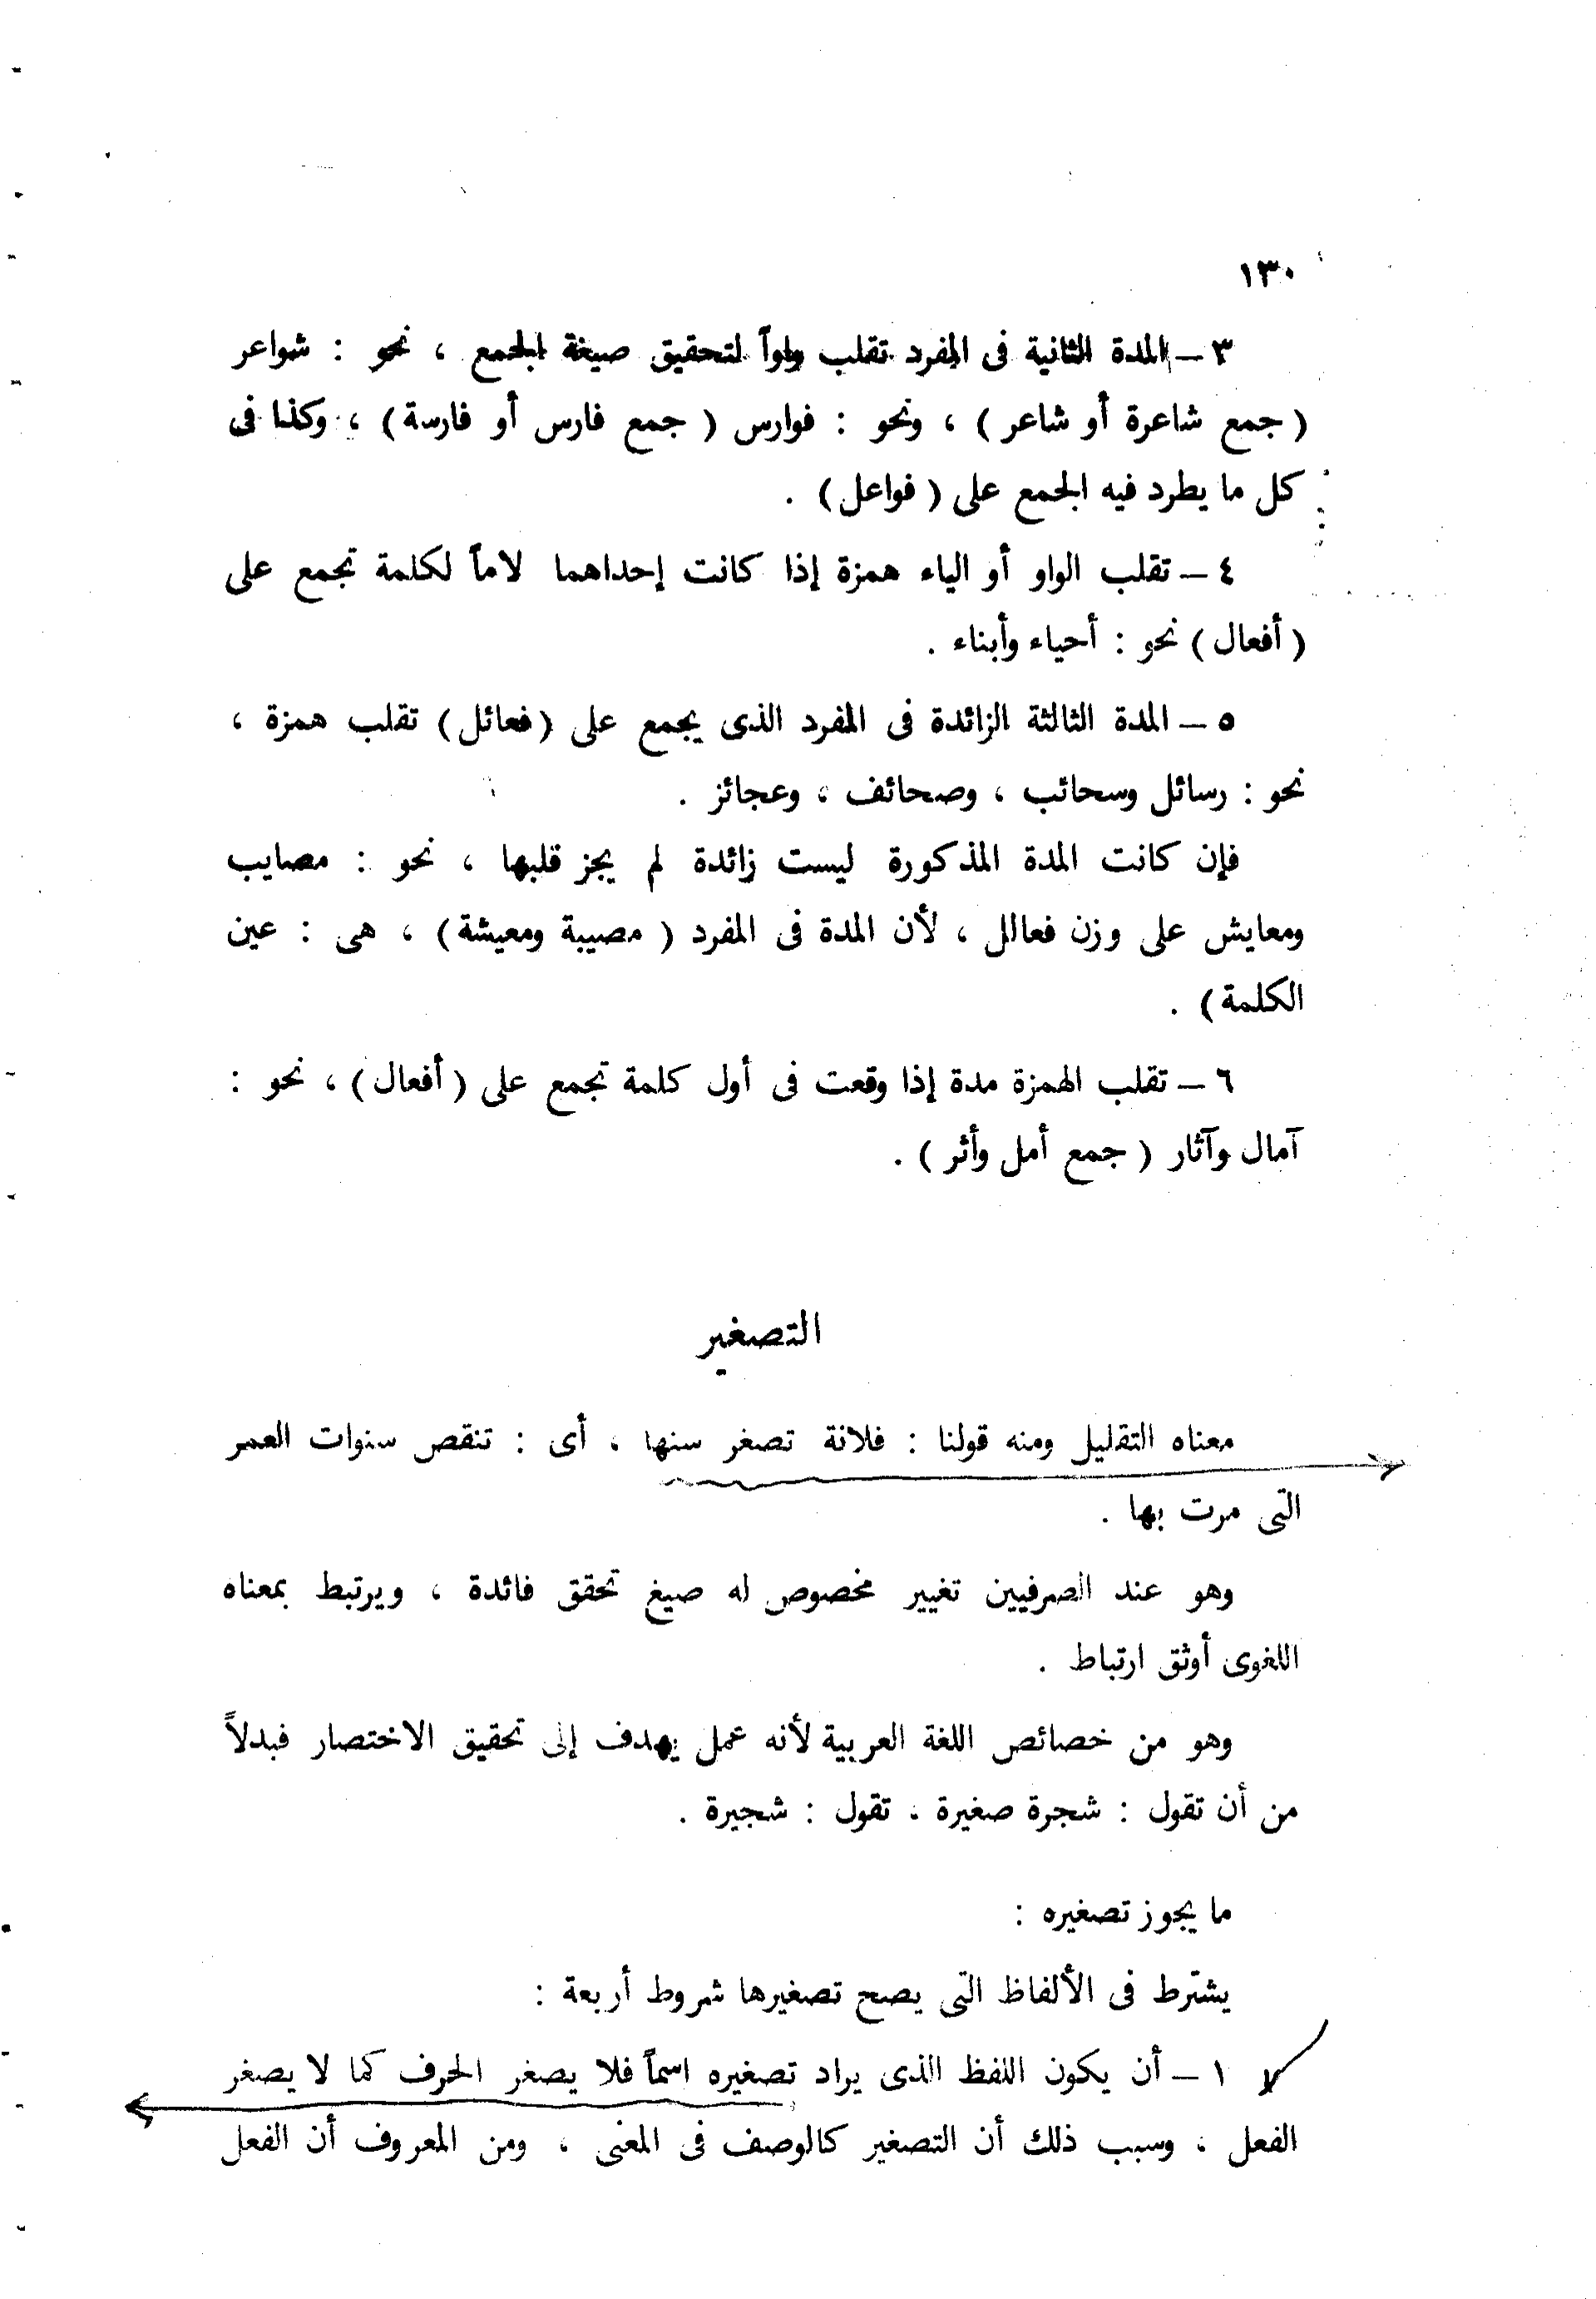 ١٣٠
٣ – المدة الثانية فى المفرد تقلب واواً لتحقيق صيغة الجمع ، نحو : شواعر
( جمع شاعرة أو شاعر ) ، ونحو : فوارس ( جمع فارس أو فارسة ) ، وكذا فى
كل ما يطرد فيه الجمع على ( فواعل ) .
٤ – تقلب الواو أو الياء همزة إذا كانت إحداهما لاماً لكلمة تجمع على
( أفعال ) نحو : أحياء وأبناء .
٥ – المدة الثالثة الزائدة فى المفرد الذى يجمع على ( فعائل ) تقلب همزة ،
نحو : رسائل وسحائب ، وصحائف ، وعجائز .
فإن كانت المدة المذكورة ليست زائدة لم يجز قلبها ، نحو : مصايب
ومعايش على وزن فعالل ، لأن المدة فى المفرد ( مصيبة ومعيشة ) ، هى : عين
الكلمة ) .
٦ – تقلب الهمزة مدة إذا وقعت فى أول كلمة تجمع على ( أفعال ) ، نحو :
آمال وآثار ( جمع أمل وأثر ) .
التصغير
معناه التقليل ومنه قولنا : فلانة تصغر سنها ، أى : تنقص سنوات العمر
التى مرت بها .
وهو عند الصرفيين تغيير مخصوص له صيغ تحقق فائدة ، ويرتبط بمعناه
اللغوى أوثق ارتباط .
وهو من خصائص اللغة العربية لأنه عمل يهدف إلى تحقيق الاختصار فبدلاً
من أن تقول : شجرة صغيرة ، تقول : شجيرة .
ما يجوز تصغيره :
يشترط فى الألفاظ التى يصح تصغيرها شروط أربعة :
١ – أن يكون اللفظ الذى يراد تصغيره اسماً فلا يصغر الحرف كما لا يصغر
الفعل ، وسبب ذلك أن التصغير كالوصف فى المعنى ، ومن المعروف أن الفعل